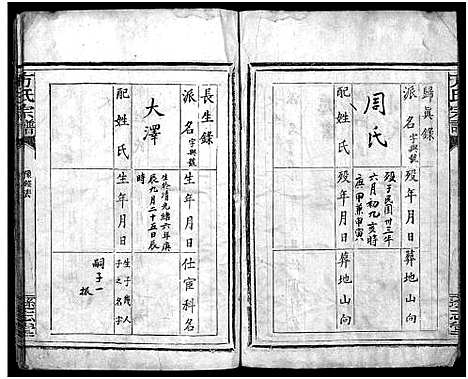 歸眞錄
派名字與號
周氏
配姓氏
歿年月日
歿於民國卅三年
六月初九亥時
庚甲兼申寅
歿年月日
葬地山向
葬地山向
方氏宗譜
長生錄
派名字與號
大澤
配姓氏
生年月日
生於清光緒六年庚
辰九月二十五日辰
時
生年月日
仕宦科名
生子幾人
子之名字
嗣子一
振
方氏宗譜